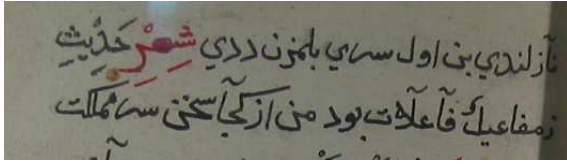 نازلندي بن اول سري بلمزن ددي شِعْرْ حَدِيثِ
زمفاعيلُ فاعلات بود من از كجا سخن سر مملكت